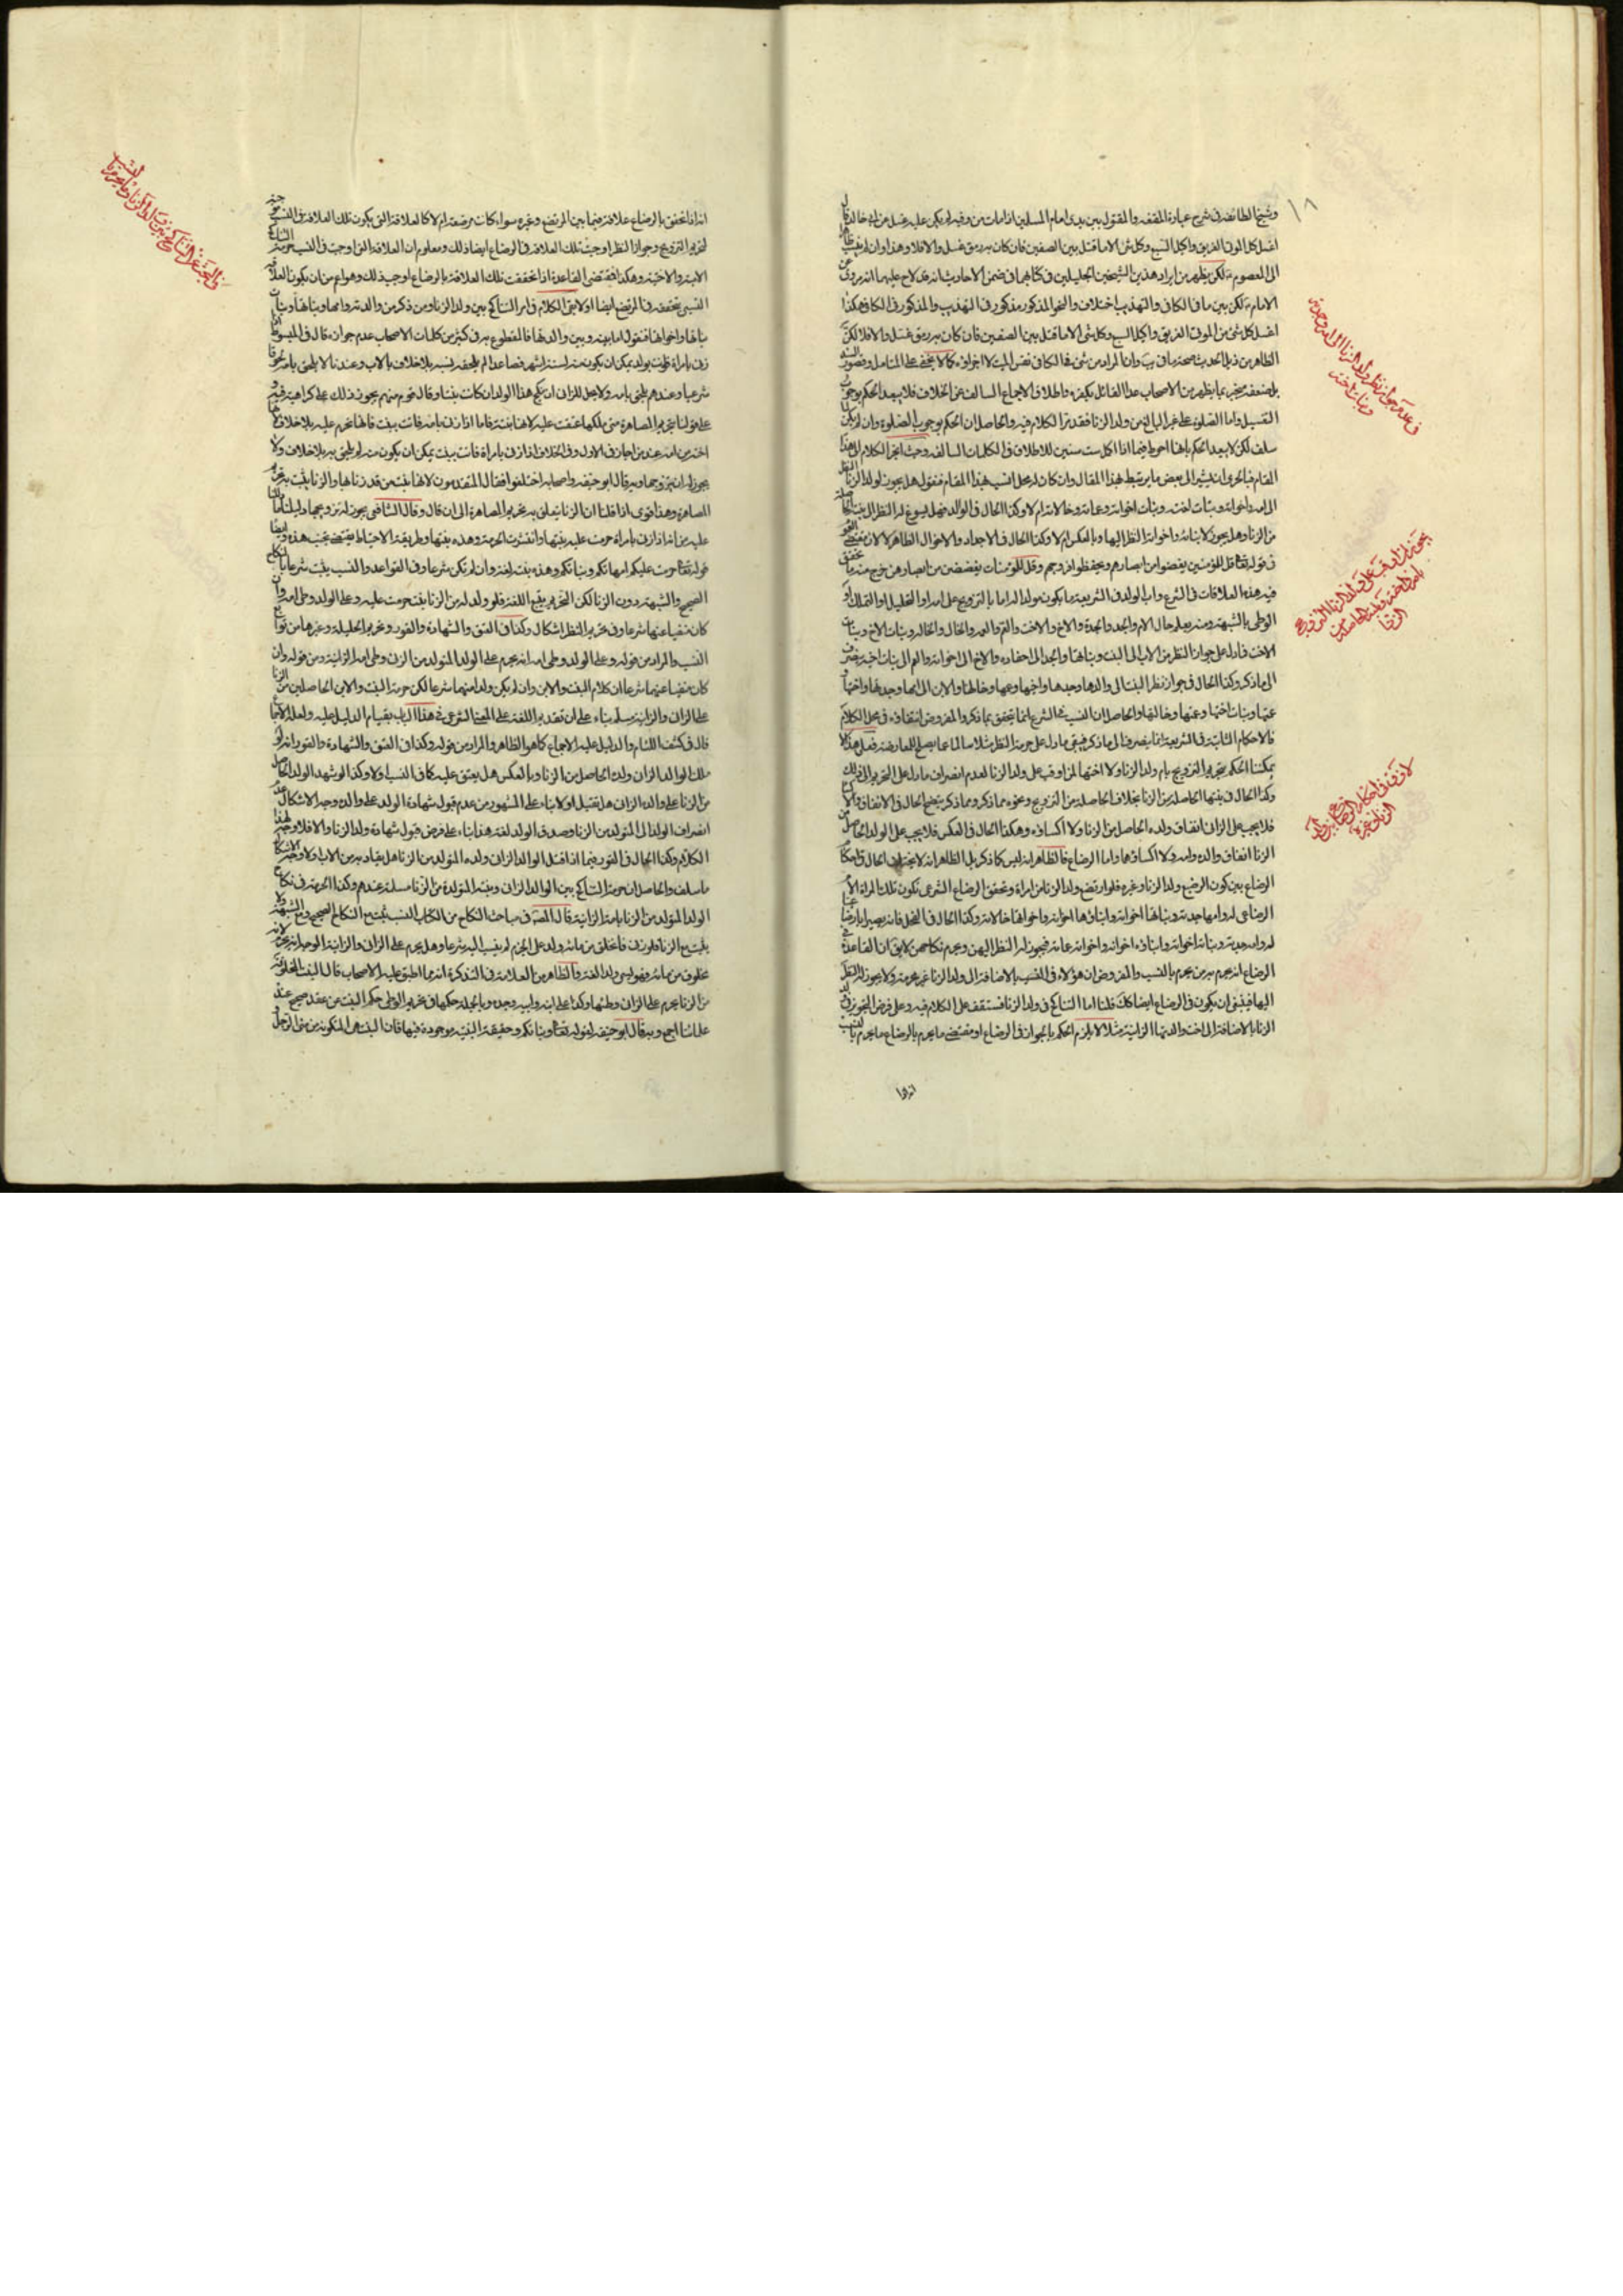 ١٨
وشيخنا الطائفة في شرح عبارة المقنعة والمقتول بين يدي امام المسلمين اذا مات من وقته لم يكن عليه غسل عن ابي خالد قال
اغسل كل الموتى الغريق واكيل السبع وكل شئ الا ما قتل بين الصفين فان كان به رمق غسل والا فلا وهذا وان لم
الى المعصوم لكن يظهر من ايراد هذين الشيخين الجليلين في كتابهما في ضمن الاحاديث انه قد لاح عليهما انه مروي عن
الامام لكن بين ما في الكافي والتهذيب اختلاف والنحو المذكور مذكور في التهذيب والمذكور في الكافي هكذا
اغسل كل شئ من الموتى الغريق واكيل السبع وكل شئ الا ما قتل بين الصفين فان كان به رمق غسل والا فلا لكن
الظاهر من ذيل الحديث صحة ما في يب وان المراد من شئ في الكافي نفس الميت لا اجزاؤه كما لا يخفى على المتامل وقصور السند
بل ضعفه منجبر بما يظهر من الاصحاب عدا القائل بكفره واطلاق الاجماع السالف عن الخلاف فلا يبعد الحكم بوجوب
التغسيل واما الصلوة على غير البالغ من ولد الزنا فقد مر الكلام فيه والحاصل ان الحكم بوجوب الصلوة وان لم يكن
سلف لكن لا يبعد الحكم بانها احوط فيما اذا اكمل ست سنين للاطلاق في الكلمات السالفة وحيث انجر الكلام الى هذا
المقام فبالحري ان نشير الى بعض ما يرتبط بهذا المقال وان كان له محل انسب بهذا المقام فنقول هل يجوز لولد الزنا النظر
الى امه واخواته وبنات اخته وبنات اخواته وعماته وخالاته ام لا وكذا الحال في الوالد فهل يسوغ له النظر الى بنته الحاصلة
من الزنا وهل يجوز لابنائه واخواته النظر اليها وبالعكس ام لا وكذا الحال في الاجداد والاخوال الظاهر لا لان مقتضى العموم
في قوله تعالى قل للمؤمنين يغضوا من ابصارهم ويحفظوا فروجهم وقل للمؤمنات يغضضن من ابصارهن خرج منه ما تحقق
فيه هذه العلاقات في الشرع واب الولد في الشريعة ما يكون مولدا له اما بالتزويج على امه او التحليل او التملك او
الوطي بالشبهة ومنه يعلم حال الام والجد والجدة والاخ والاخت والعم والعمة والخال والخالة وبنات الاخ وبنات
الاخت فما دل على جواز النظر من الاب الى البنت وبناتها والجد الى احفاده والاخ الى اخواته والعم الى بنات اخيه ينصرف
الى ما ذكر وكذا الحال في جواز نظر البنت الى والدها وجدها واخيها وعمها وخالها والابن الى امها وجدها واختها
عمها وبنات اختها وعمتها وخالتها والحاصل ان النسب في الشرع انما يتحقق بما ذكر والمفروض انتفاؤه في محل الكلام
فالاحكام الثابتة في الشريعة انما ينصرف الى ما ذكر فيبقى ما دل على حرمة النظر مثلا سالما عما يصلح للمعارضة فعلى هذا لا
يمكننا الحكم بتحريم التزويج بام ولد الزنا ولا اختها لمن اوقب على ولد الزنا لعدم انصراف ما دل على التحريم الى ذلك
وكذا الحال في بنتها الحاصلة من الزنا بخلاف الحاصلة من التزويج ونحوه مما ذكر ومما ذكر يتضح الحال في الانفاق
فلا يجب على الزاني انفاق ولده الحاصل من الزنا ولا اكساؤه وهكذا الحال في العكس فلا يجب على الولد الحاصل من
الزنا انفاق والده وامه ولا اكساؤهما واما الرضاع فالظاهر انه ليس كما ذكر بل الظاهر انه لا يختلف الحال في احكام
الرضاع بين كون الرضيع ولد الزنا وغيره فلو ارتضع ولد الزنا من امراة وتحقق الرضاع الشرعي تكون تلك المراة الام
الرضاعي له وامها جدته وبناتها اخواته وابناؤها اخوته واخواتها خالاته وكذا الحال في الفحل فانه يصير ابا رضاعيا
له وامه جدته وبناته اخواته وابناؤه اخوانه واخواته عماته فيجوز له النظر اليهن ويحرم نكاحهن لا يق ان القاعدة في
الرضاع انه يحرم به من يحرم بالنسب والمفروض ان هؤلاء في النسب بالاضافة الى ولد الزنا غير محرمة ولا يجوز له النظر
اليها فينبغي ان يكون في الرضاع ايضا كك قلنا اما التناكح في ولد الزنا فستقف على الكلام فيه وعلى فرض التجويز في ولد
الزنا بالاضافة الى اخت والدتها الزانية مثلا لا يلزم الحكم بالجواز في الرضاع اذ مقتضى ما يحرم بالرضاع ما يحرم بالنسب
انه اذا
في عدم جواز نظر ولد الزنا الى امه وجدته
وبنات اخته
يجوز لمن اوقب على ولد الزنا التزويج
بامه واخته وبنته الحاصلة من
الزنا
لا فرق في احكام الرضاع بين ولد
الزنا وغيره
انه اذا تحقق بالرضاع علاقة فيما بين المرتضع وغيره سواء كانت مرضعة ام لا كالعلاقة التي يكون تلك العلاقة في النسب موجبة
لتحريم التزويج وجواز النظر اوجبت تلك العلاقة في الرضاع ايضا ذلك ومعلوم ان العلاقة التي اوجبت في النسب حرمة التناكح
الابنة والاختية وهكذا فمقتضى القاعدة اذا تحققت تلك العلاقة بالرضاع اوجب ذلك وهو اعم من ان يكون العلاقة
النسبي متحققة في المرتضع ايضا او لا بقي الكلام في امر التناكح بين ولد الزنا ومن ذكر من والدته وامها وبناتها وبنات
بناتها واخواتها فنقول اما بينه وبين والدتها فالمقطوع به في كثير من كلمات الاصحاب عدم جوازه قال في المبسوط اذا
زنى بامراة فاتت بولد يمكن ان يكون منه لستة اشهر فصاعدا لم يلحق نسبه بلا خلاف بالاب وعندنا لا يلحق بامه لحوقا
شرعيا وعندهم يلحق بامه ولا يحل للزاني ان ينكح هذا الولد ان كانت بنتا وقال قوم منهم يجوز ذلك على كراهية فيه و
على قولنا بتحريم المصاهرة متى ملكها عتقت عليه لانها بنته فاما اذا زنى بامه فاتت ببنت فانها تحرم عليه بلا خلاف لانها
اخته من امه عند من اجاز في الاول وفي الخلاف اذا زنى بامراة فاتت ببنت يمكن ان يكون منه لم يلحق به بلا خلاف ولا
يجوز له ان يتزوجها وبه قال ابو حنيفة واصحابه اختلفوا فقال المتقدمون لانها بنت من قد زنا بها والزنا يثبت به تحريم
المصاهرة وهذا قوي اذا قلنا ان الزنا يتعلق به تحريم المصاهرة الى ان قال وقال الشافعي يجوز له تزويجها دليلنا ما دللنا
عليه من انه اذا زنى بامراة حرمت عليه بنتها وانتشرت الحرمة وهذه بنتها وطريقة الاحتياط يقتضي تجنب هذه وايضا
قوله تعالى حرمت عليكم امهاتكم وبناتكم وهذه بنته لغة وان لم تكن شرعا وفي القواعد والنسب يثبت شرعا بالنكاح
الصحيح والشبهة دون الزنا لكن التحريم يتبع اللغة فلو ولد له من الزنا بنت حرمت عليه وعلى الولد وطي امه وان
كان منفيا عنهما شرعا وفي تحريم النظر اشكال وكذا في العتق والشهادة والقود وتحريم الحليلة وغيرها من توابع
النسب والمراد من قوله وعلى الولد وطي امه انه يحرم على الولد المتولد من الزنى وطي امه الزانية ومن قوله وان
كان منفيا عنهما شرعا ان كلام البنت والابن وان لم يكن ولدا منهما شرعا لكن حرمة البنت والابن الحاصلين من الزنا
على الزاني والزانية مسلمة بناء على ان تقديم اللغة على المعنى الشرعي في هذا الباب بقيام الدليل عليه ولعله الاجماع
قال في كشف اللثام والدليل عليه الاجماع كما هو الظاهر والمراد من قوله وكذا في العتق والشهادة والقود انه لو
ملك الوالد الزاني ولده الحاصل من الزنا وبالعكس هل يعتق عليه كما في النسب او لا وكذا لو شهد الولد الحاصل
من الزنا على والده الزاني هل تقبل او لا بناء على المشهور من عدم قبول شهادة الولد على والده وجه الاشكال عدم
انصراف الولد الى المتولد من الزنا وصدق الولد لغة هذا بناء على فرض قبول شهادة ولد الزنا والا فلا وجه لهذا
الكلام وكذا الحال في القود فيما اذا قتل الوالد الزاني ولده المتولد من الزنا هل يقاد به من الاب او لا وجه الاشكال
ما سلف والحاصل ان حرمة التناكح بين الوالد الزاني وبنته المتولدة من الزنا مسلمة عندهم وكذا الحرمة في نكاح
الولد المتولد من الزنا بامه الزانية قال المصنف في مباحث النكاح من الكتاب النسب يثبت مع النكاح الصحيح ومع الشبهة ولا
يثبت مع الزنا فلو زنى فانخلق من مائه ولد على الجزم لم ينسب اليه شرعا وهل يحرم على الزاني والزانية الوجه انه يحرم لانه
مخلوق من مائه فهو يسمى ولدا لغة والظاهر من العلامة في التذكرة انه مما اطبق عليه الاصحاب قال البنت المخلوقة
من الزنا يحرم على الزاني وطئها وكذا على ابنه وابيه وجده وبالجملة حكمها في تحريم الوطي حكم البنت عن عقد صحيح عند
علمائنا اجمع وبه قال ابو حنيفة لقوله تعالى وبناتكم وحقيقة البنتية موجودة فيها فان البنت هي المتكونة من مني الرجل
في البحث عن التناكح بين ولد الزنا وما يحرم من
النسب